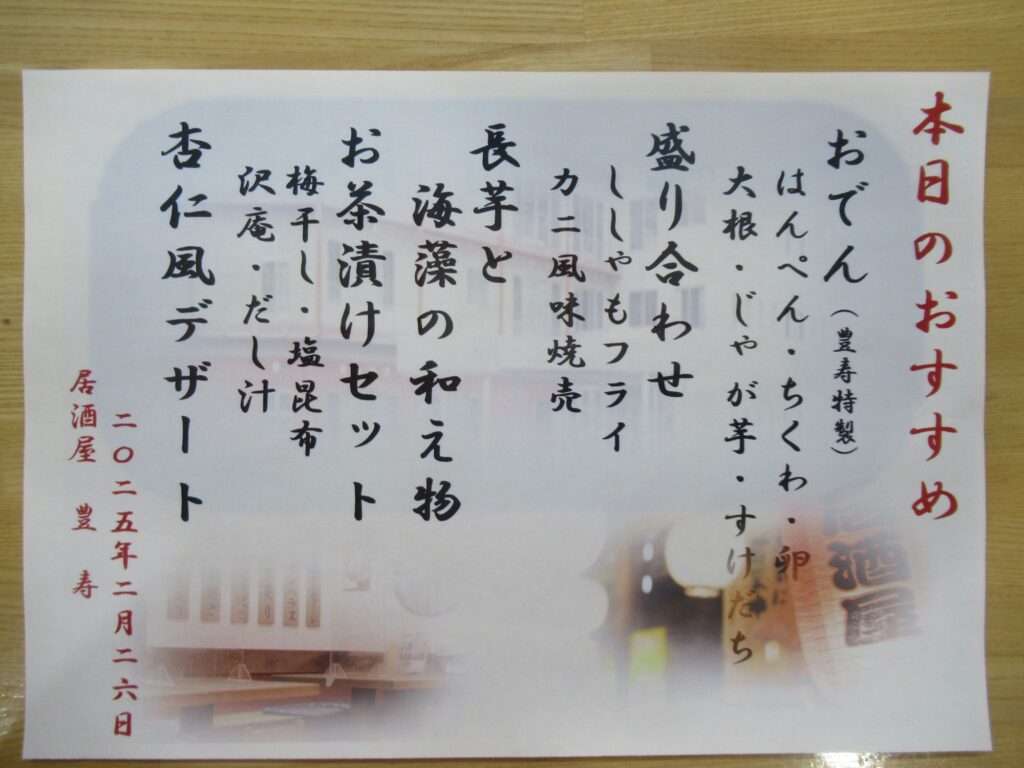 本日のおすすめ
おでん(豊寿特製)
はんぺん・ちくわ・卵
大根・じゃが芋・すけだち
盛り合わせ
ししゃもフライ
カニ風味焼売
長芋と
海藻の和え物
お茶漬けセット
梅干し・塩昆布
沢庵・だし汁
杏仁風デザート
二〇二五年二月二六日
居酒屋 豊寿
居酒屋